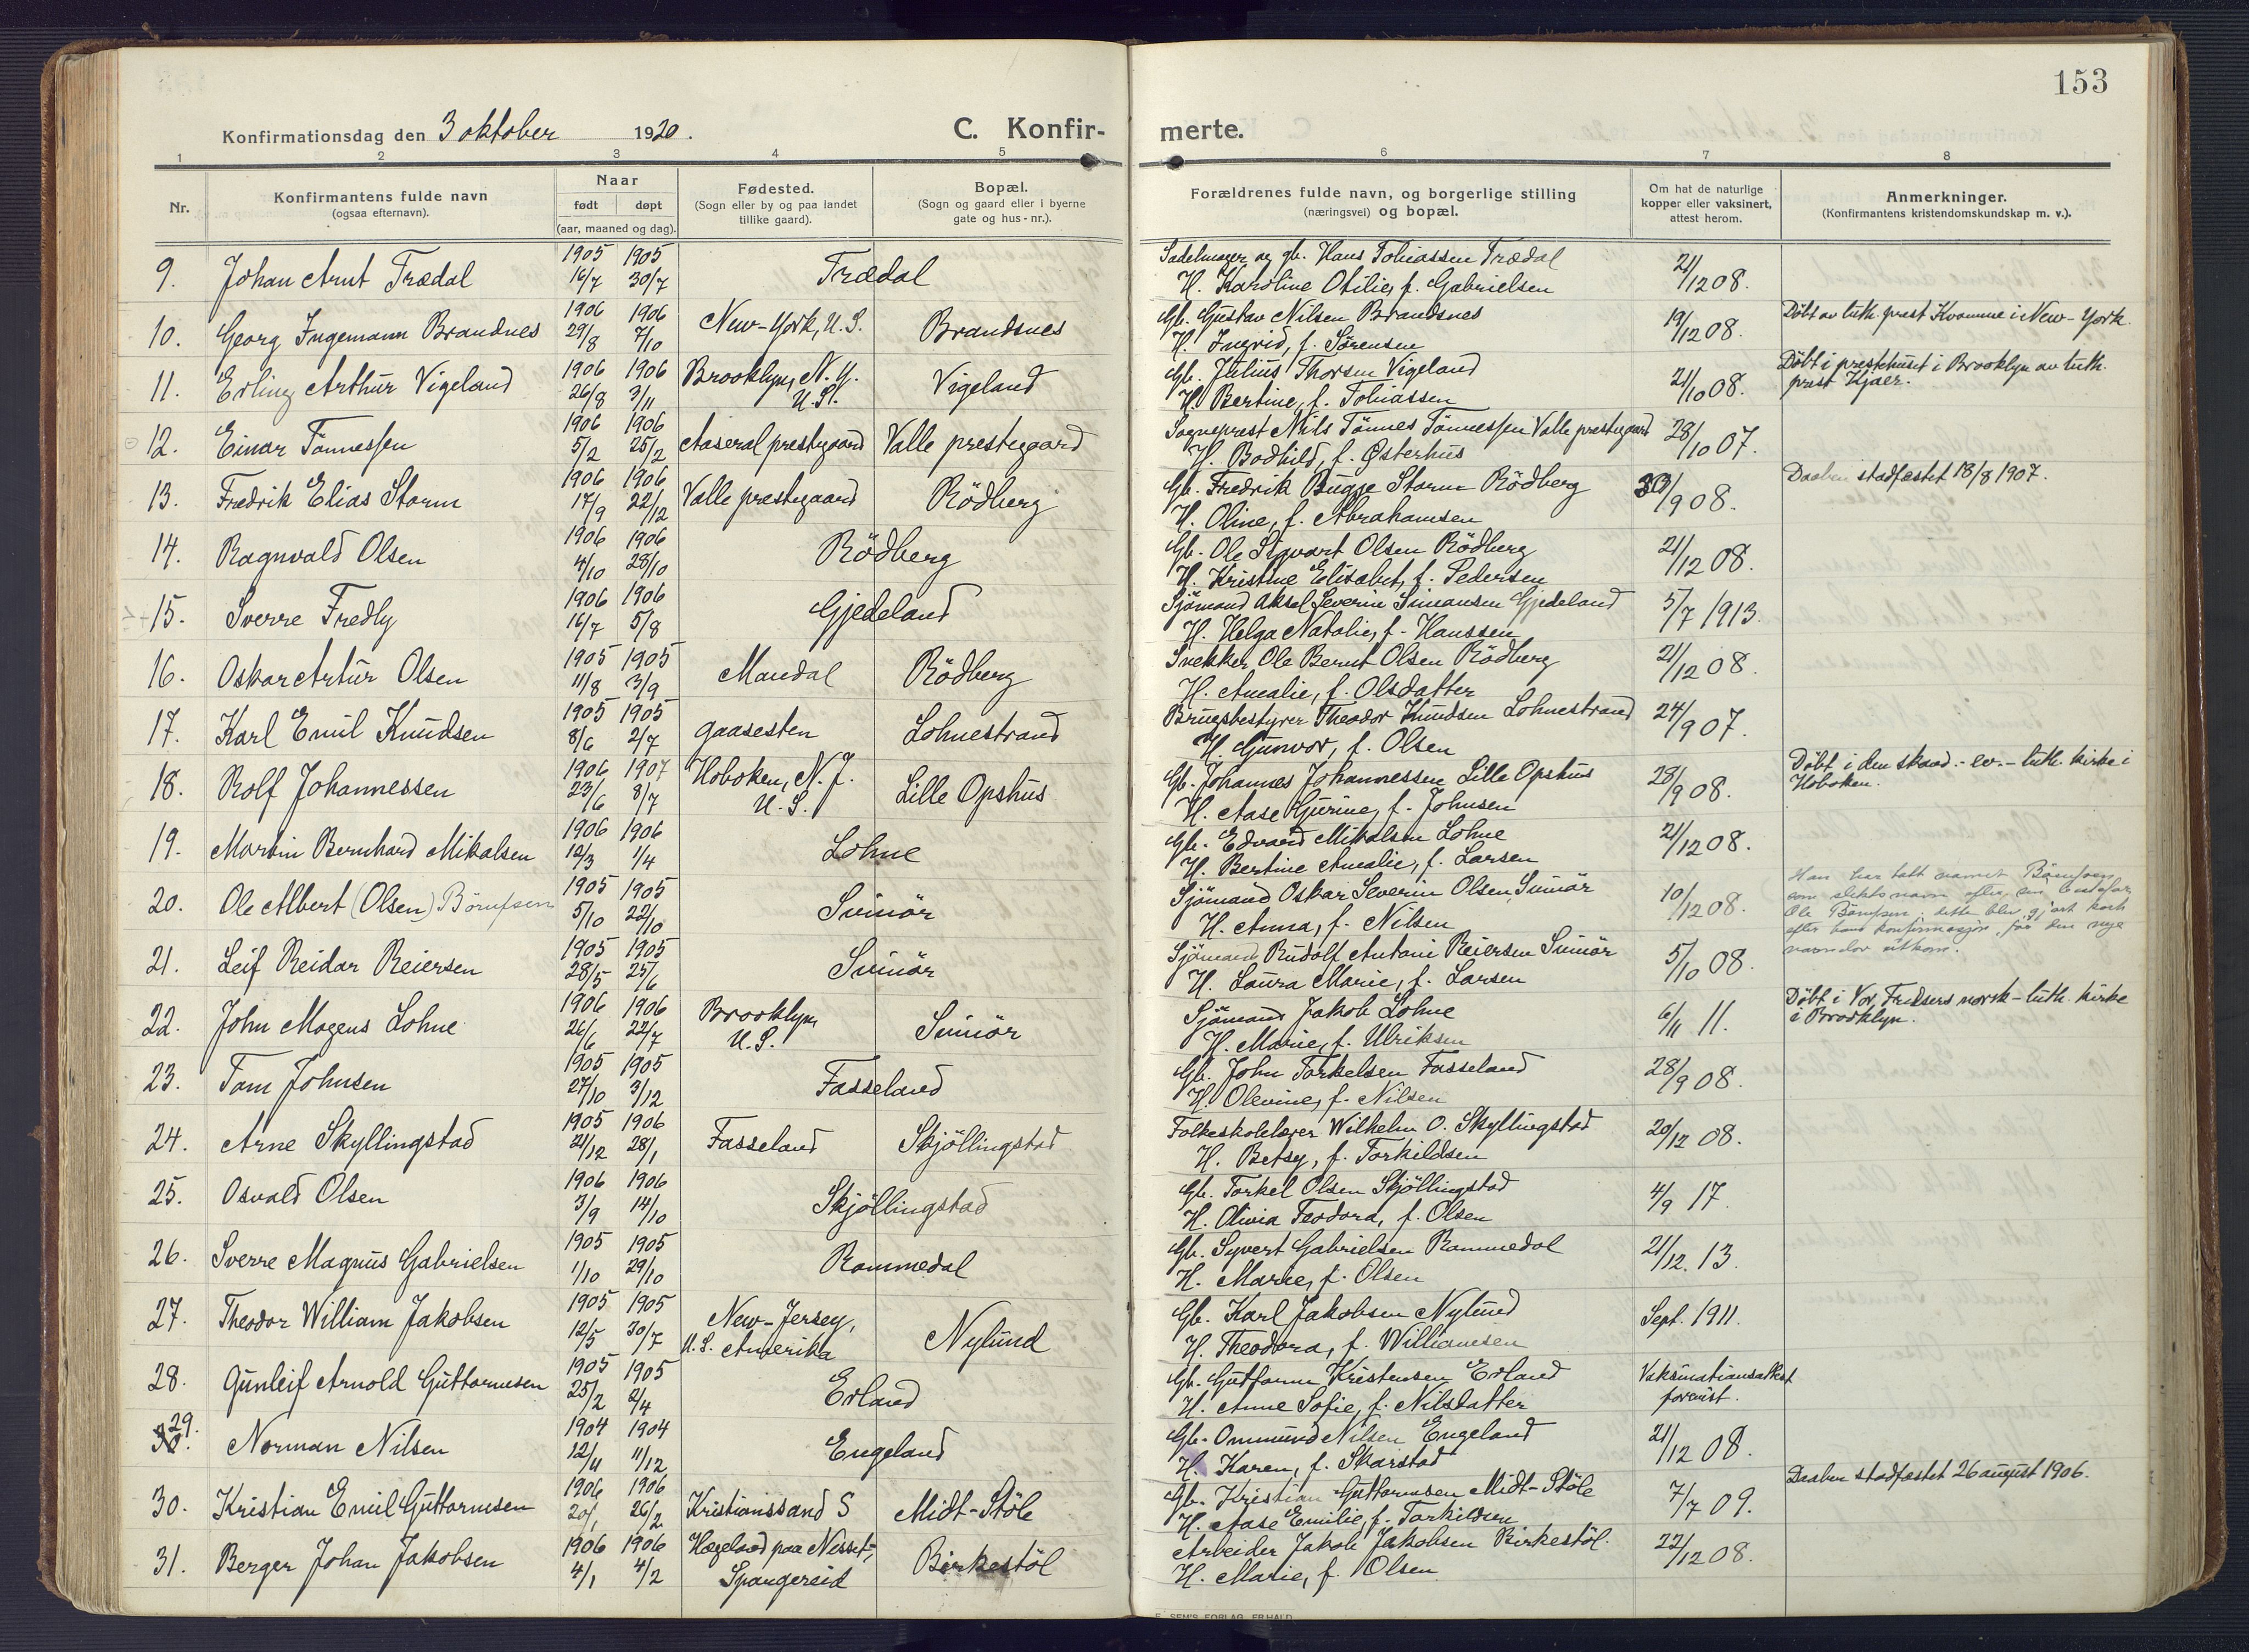 153
Konfirmationsdag den 3 oktober 1920. C. Konfir- merte.
1 2 3 4 5 6 7 8
Nr. Konfirmantens fulde navn (ogsaa efternavn). Naar født døpt (aar, maaned og dag). Fødested. (Sogn eller by og paa landet tillike gaard). Bopæl. (Sogn og gaard eller i byerne gate og hus-nr.). Forældrenes fulde navn, og borgerlige stilling (næringsvei) og bopæl. Om hat de naturlige kopper eller vaksinert, attest herom. Anmerkninger. (Konfirmantens kristendomskundskap m. v.).
9. Johan Arnt Trædal 1905 16/7 1905 30/7 Trædal Sadelmager og gb. Hans Tobiassen Trædal 21/12 08.
H. Karoline Otilie, f. Gabrielsen
10. Georg Ingemann Brandnes 1906 29/8 1906 7/10 New-York, U.S. Brandsnes Gb. Gustav Nilsen Brandsnes 19/12 08. Döbt av luth. prest Kvamme i New-York.
H. Ingrid, f. Sörensen
11. Erling Arthur Vigeland 1906 26/8 1906 3/11 Brooklyn, N.Y. U.St. Vigeland Gb. Julius Thorsen Vigeland 21/10 08. Döbt i prestehuset i Brooklyn av luth. prest Kjær.
H. Bertine, f. Tobiassen
12. Einar Tönnessen 1906 5/2 1906 25/2 Aaseral prestegaard Valle prestegaard Sogneprest Nils Tönnes Tönnessen Valle prestegaard 28/10 07.
H. Bodhild, f. Østerhus
13. Fredrik Elias Storm 1906 17/9 1906 22/12 Valle prestegaard Rödberg Gb. Fredrik Bugge Storm Rödberg 30/9 08. Daaben stadfæstet 18/8 1907.
H. Oline, f. Abrahamsen
14. Ragnvald Olsen 1906 4/10 1906 28/10 Rödberg Gb. Ole Sigvart Olsen Rödberg 21/12 08.
H. Kristine Elisabet, f. Pedersen
15. Sverre Fredly 1906 16/7 1906 5/8 Gjedeland Sjömand Aksel Severin Simonsen Gjedeland 5/7 1913.
H. Helga Natalie, f. Hanssen
16. Oskar Artur Olsen 1905 11/8 1905 3/9 Mandal Rödberg Snekker Ole Bernt Olsen Rödberg 21/12 08.
H. Amalie, f. Olsdatter
17. Karl Emil Knudsen 1905 8/6 1905 2/7 Gaasesten Lohnestrand Brugsbestyrer Theodor Knudsen Lohnestrand 24/9 07.
H. Gunvor, f. Olsen
18. Rolf Johannessen 1906 23/6 1907 8/7 Hoboken, N.J. U.S. Lille Opshus Gb. Johannes Johannessen Lille Opshus 28/9 08. Döbt i den skand.-ev.-luth. kirke i Hoboken.
H. Aase Gurine, f. Johnsen
19. Martin Bernhard Mikalsen 1906 12/3 1906 1/4 Lohne Gb. Edvard Mikalsen Lohne 21/12 08.
H. Bertine Amalie, f. Larsen
20. Ole Albert (Olsen) Börufsen 1905 5/10 1905 22/10 Svinör Sjömand Oskar Severin Olsen, Svinör 10/12 08. Han har tatt navnet Börufsen som slektsnavn efter sin bestefar Ole Börufsen; dette blev gjort kort efter hans konfirmasjon, før den nye navnelov utkom.
H. Anna, f. Nilsen
21. Leif Reidar Reiersen 1905 28/5 1905 25/6 Svinör Sjömand Rudolf Antoni Reiersen Svinör 5/10 08.
H. Laura Marie, f. Larsen
22. John Mogens Lohne 1906 26/6 1906 22/7 Brooklyn, U.S. Svinör Sjömand Jakob Lohne 6/11 11. Döbt i Vor Frelsers norsk-luth. kirke i Brooklyn.
H. Marie, f. Ulriksen
23. Tom Johnsen 1905 27/10 1905 3/12 Fasseland Gb. John Torkelsen Fasseland 28/9 08.
H. Olevine, f. Nilsen
24. Arne Skyllingstad 1905 21/12 1906 28/1 Fasseland Skjöllingstad Folkeskolelærer Wilhelm O. Skyllingstad 20/12 08.
H. Betsy, f. Torkildsen
25. Osvald Olsen 1906 3/9 1906 14/10 Skjöllingstad Gb. Torkel Olsen Skjöllingstad 4/9 17.
H. Olivia Teodora, f. Olsen
26. Sverre Magnus Gabrielsen 1905 1/10 1905 29/10 Rommedal Gb. Syvert Gabrielsen Rommedal 21/12. 13.
H. Marie, f. Olsen
27. Theodor William Jakobsen 1905 12/5 1905 30/7 New-Jersey, U.S. Amerika Nylund Gb. Karl Jakobsen Nylund Sept. 1911.
H. Theodora, f. Williamsen
28. Gunleif Arnold Guttormsen 1905 25/2 1905 2/4 Erland Gb. Guttorm Kristensen Erland Vaksinationsattest forevist.
H. Anne Sofie, f. Nilsdatter
29. Norman Nilsen 1904 12/11 1904 11/12 Engeland Gb. Ommund Nilsen Engeland 21/12 08.
H. Karen, f. Skarstad
30. Kristian Emil Guttormsen 1906 20/1 1906 26/2 Kristianssand S Midt-Stöle Gb. Kristian Guttormsen Midt-Stöle 7/7 09. Daaben stadfæstet 26 august 1906.
H. Aase Emilie, f. Torkildsen
31. Berger Johan Jakobsen 1906 4/1 1906 4/2 Hægeland paa Nesset, Spangereid Birkestöl Arbeider Jakob Jakobsen Birkestöl. 22/12 08.
H. Marie, f. Olsen